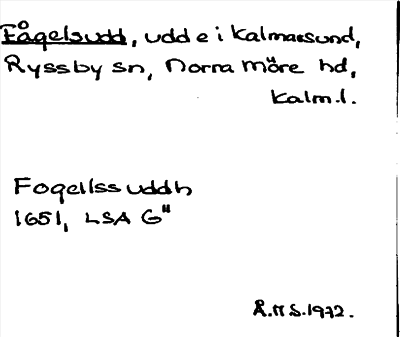 Fågelsudd, udde i Kalmarsund,
Ryssby sn, Norra Möre hd,
Kalm.l.
Fogellssuddh
1651, LSA G"
Å.H S.1972.